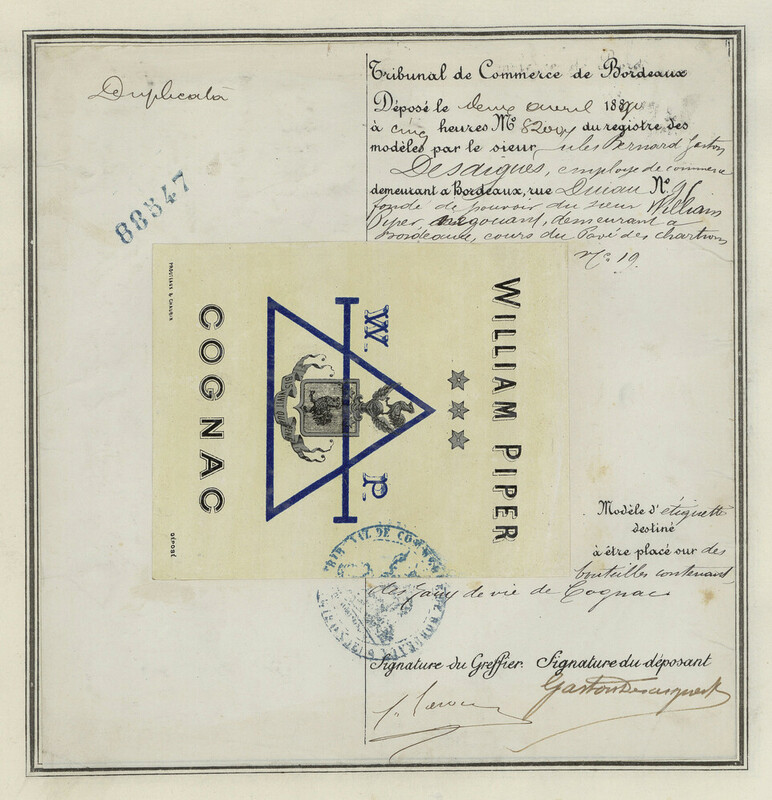 Duplicata
88547
Tribunal de Commerce de Bordeaux
Déposé le deux avril 18
à cinq heures Nº du registre des
modèles par le sieur Jules Bernard Gaston
Desaigues, employé de commerce
demeurant à Bordeaux, rue Nº
fondé de pouvoir du sieur William
Piper, négociant, demeurant à
Bordeaux, cours du Pavé des Chartrons
Nº 19.
WILLIAM PIPER
W. P.
COGNAC
DÉPOSÉ
Modèle d'étiquette
destiné
à être placé sur des
bouteilles contenant
des eaux de vie de Cognac
TRIBUNAL DE COMMERCE DE BORDEAUX
Signature du Greffier. Signature du déposant